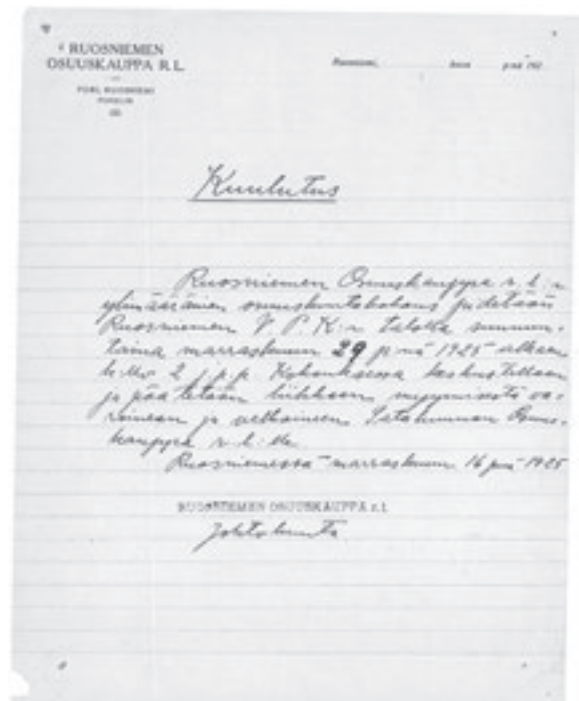 RUOSNIEMEN
OSUUSKAUPPA R. L.
PORI, RUOSNIEMI
PUHELIN
Ruosniemi, kuun p:nä 192
Kuulutus
Ruosniemen Osuuskauppa r. l:n
ylimääräinen osuuskuntakokous pidetään
Ruosniemen V. P. K:n talolla sunnun-
taina marraskuun 29 p:nä 1925 alkaen
k:llo 2 j.p.p. Kokouksessa keskustellaan
ja päätetään liikkeen myymisestä va-
roineen ja velkoineen Satakunnan Osuus-
kauppa r. l:lle.
Ruosniemessä marraskuun 16 p:nä 1925
RUOSNIEMEN OSUUSKAUPPA r.l.
Johtokunta